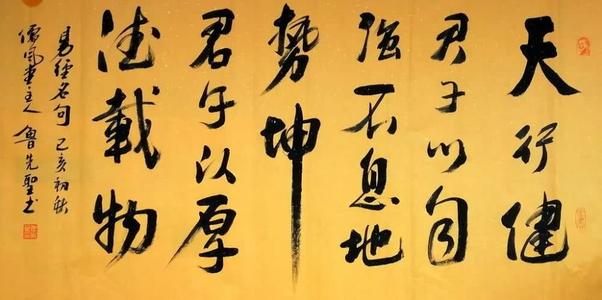 天行健
君子以自
强不息地
勢坤
君子以厚
德載物
易经名句 己亥初秋
儒风堂主人 魯先聖书